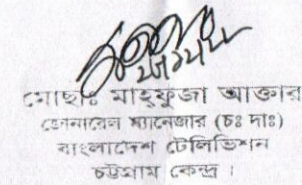 মোছাঃ মাহ্‌ফুজা আক্তার
জেনারেল ম্যানেজার (চঃ দাঃ)
বাংলাদেশ টেলিভিশন
চট্টগ্রাম কেন্দ্র।